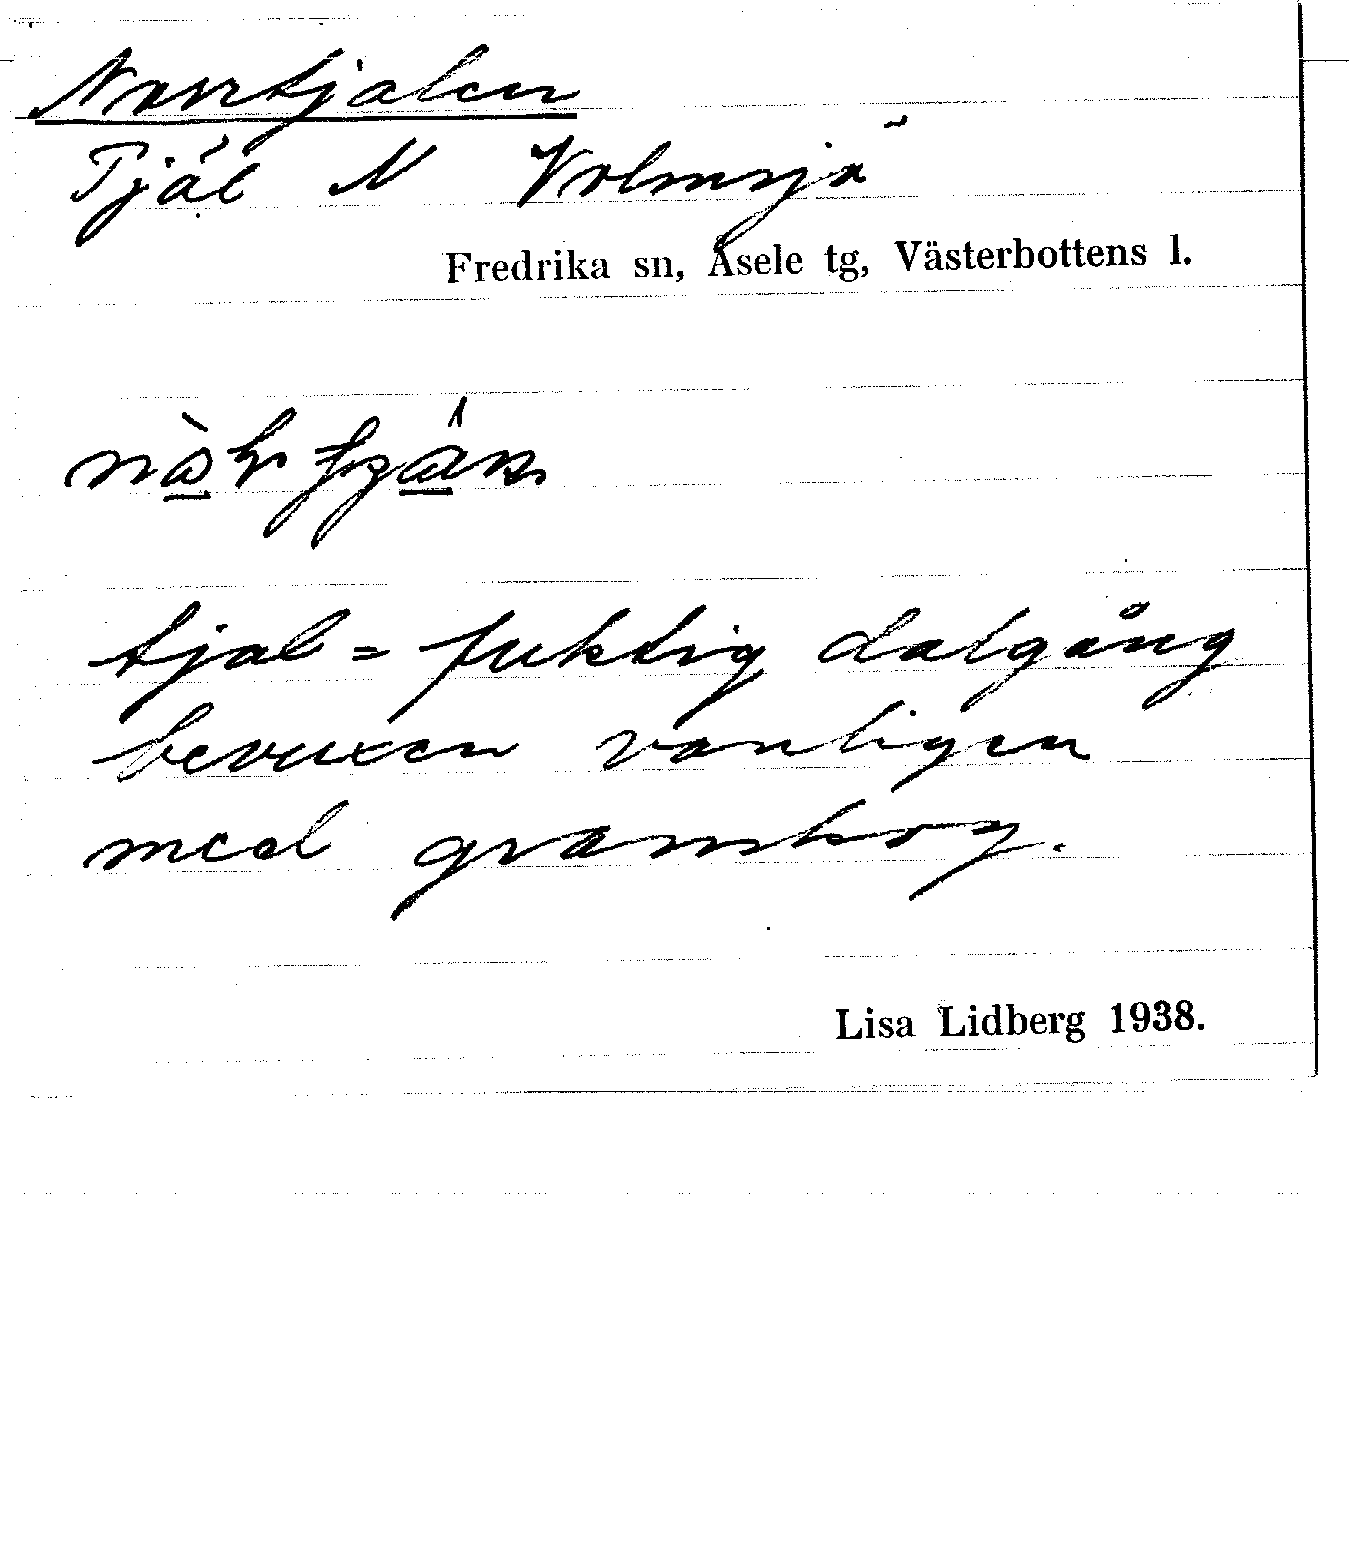 Norrtjalen
Tjäl N Volmsjö
Fredrika sn, Åsele tg, Västerbottens l.
tjal = fuktig dalgång
bevuxen vanligen
med granskog.
Lisa Lidberg 1938.